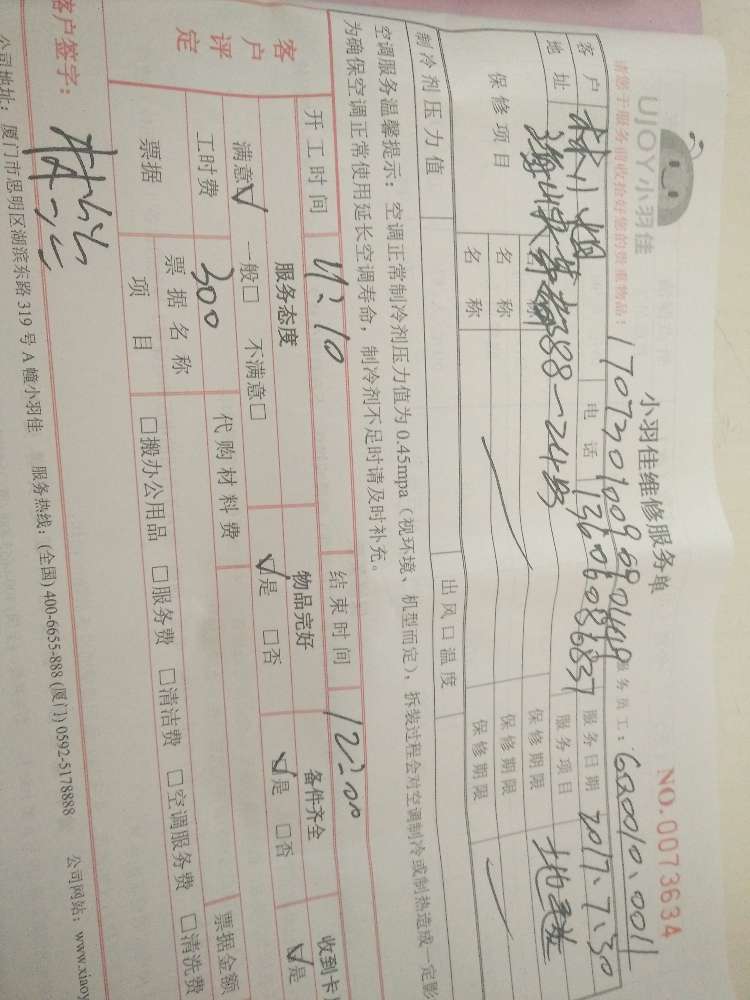 UJOY小羽佳
小羽佳维修服务单
NO.0073634
请您于服务前收拾好您的贵重物品！
服务员工：600010.0011
客户
电话
13606086837
服务日期
2017.7.30
地址
388-24号
服务项目
保修项目
名称
保修期限
名称
保修期限
名称
保修期限
制冷剂压力值
出风口温度
空调服务温馨提示：空调正常制冷剂压力值为0.45mpa（视环境、机型而定），拆装过程会对空调制冷或制热造成一定影
为确保空调正常使用延长空调寿命，制冷剂不足时请及时补充。
开工时间
11:10
结束时间
12:00
客户评定
服务态度
物品完好
备件齐全
收到卡
满意☑ 一般□ 不满意□
☑是 □否
☑是 □否
☑是
工时费
300
代购材料费
票据
票据名称
票据金额
项目
□搬办公用品 □服务费 □清洁费 □空调服务费 □清洗费
客户签字：
公司地址：厦门市思明区湖滨东路319号A幢小羽佳 服务热线：(全国)400-6655-888 (厦门)0592-5178888 公司网站：www.xiaoy